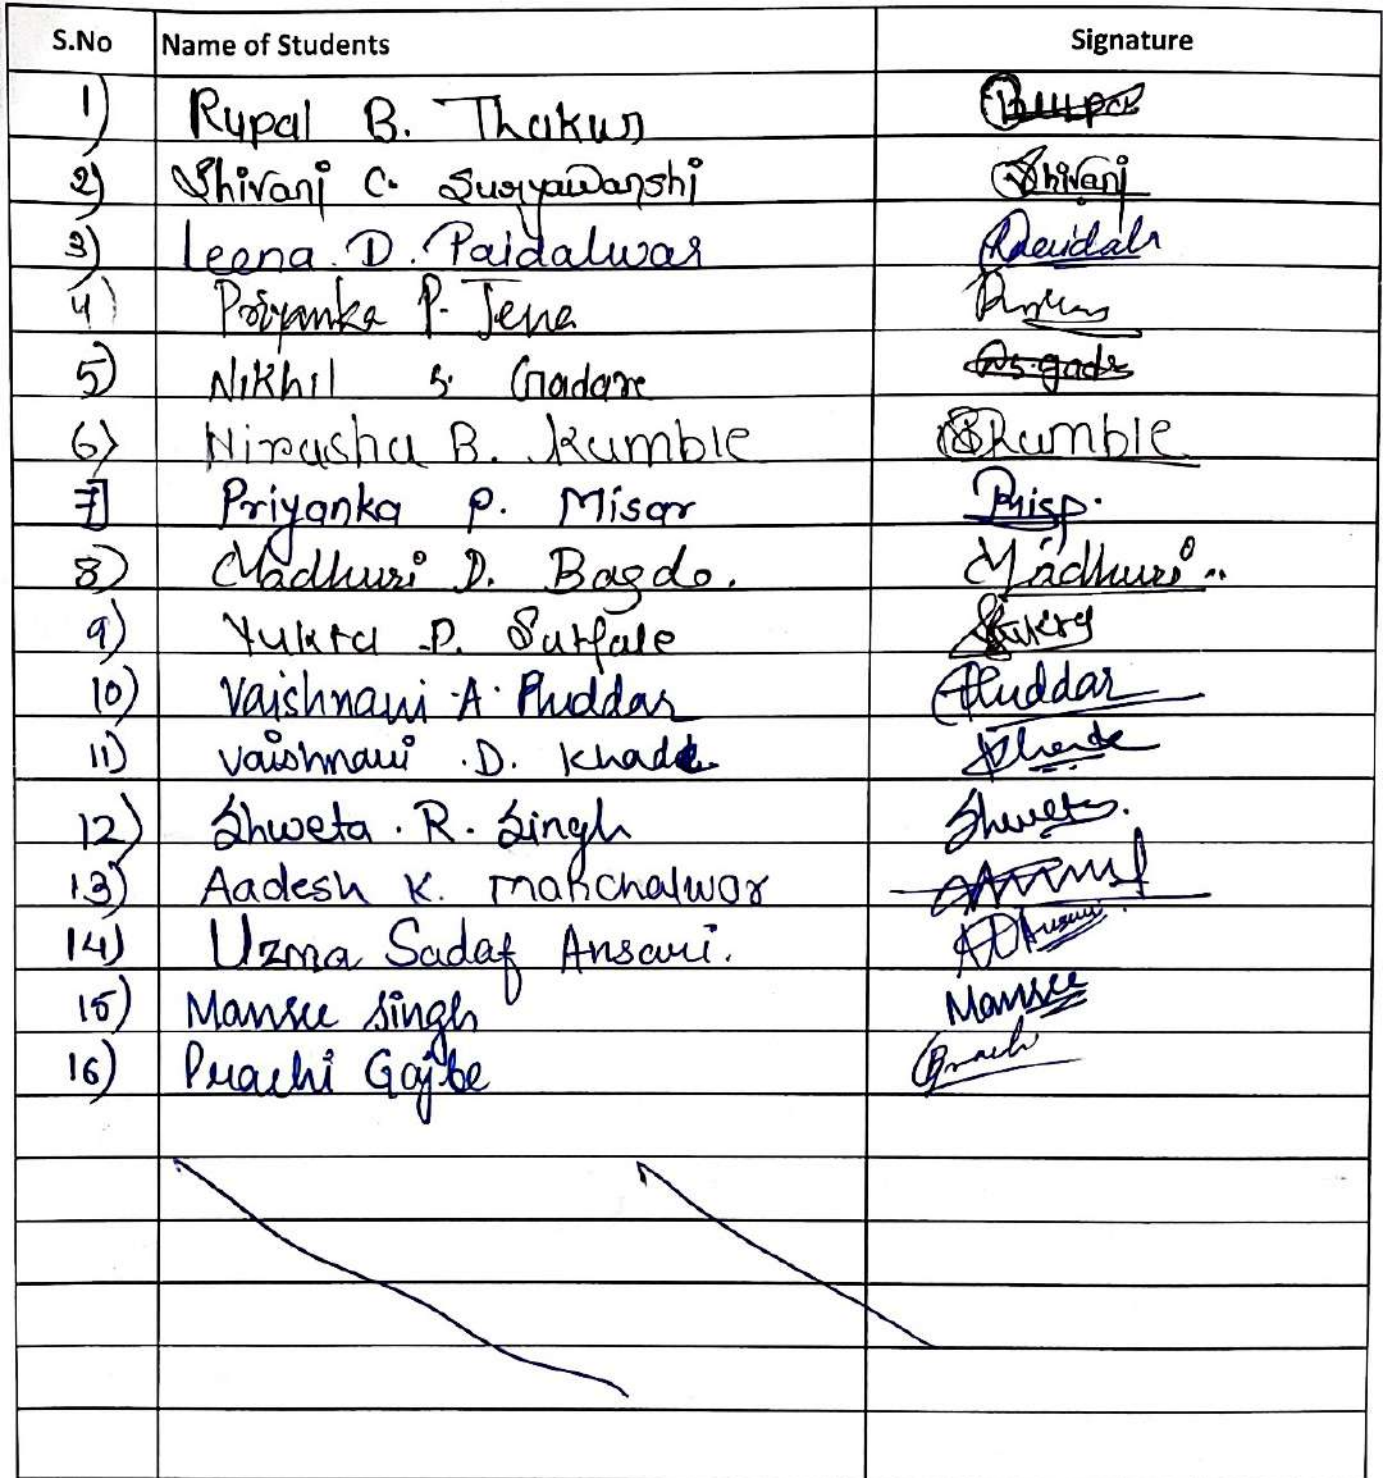 S.No Name of Students Signature
1) Rupal B. Thakur
2) Shivani C. Suryawanshi Shivani
3) Leena D. Paidalwar
4) Priyanka P. Jena
5) Nikhil S. Gadare
6) Nirasha B. Kumble Kumble
7] Priyanka P. Misar
8) Madhuri D. Bagde. Madhuri..
9) Yukta D. Satfale
10) Vaishnavi A. Pluddar Pluddar
11) Vaishnavi D. Khade
12) Shweta. R. Singh Shweta.
13) Aadesh K. Makchalwar
14) Uzma Sadaf Ansari. Ansari
15) Mansee Singh Mansee
16) Prachi Gajbe Prachi